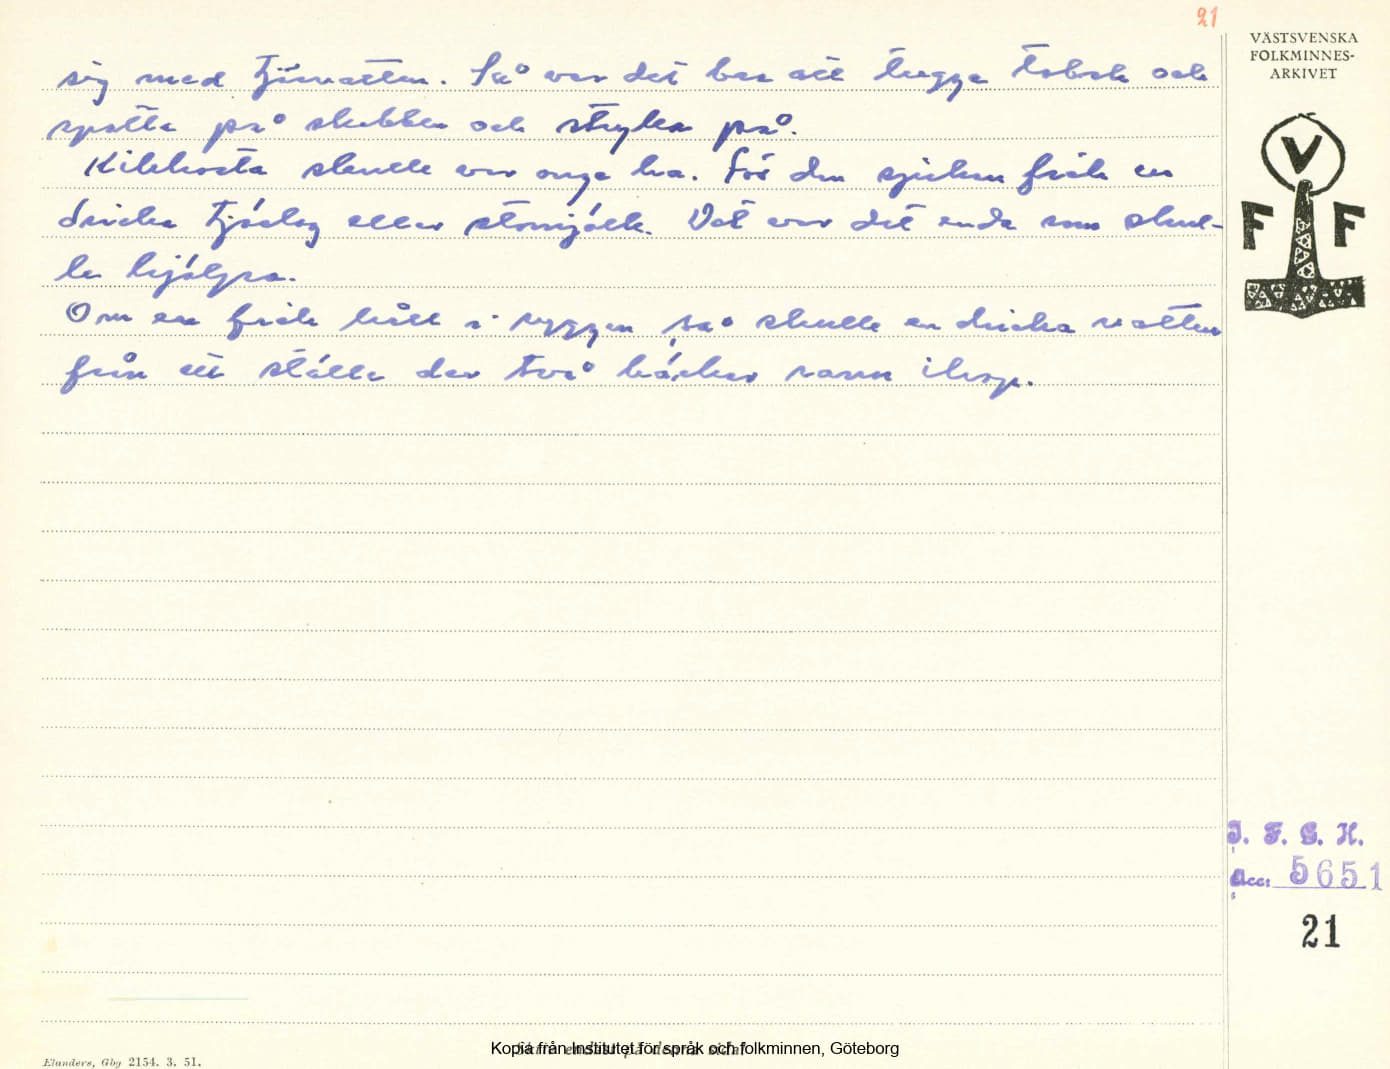 21
VÄSTSVENSKA
FOLKMINNES-
ARKIVET
sig med tjärvatten. Så var det bra att tugga tobak och
spotta på skabben och stryka på.
Kikhosta skulle var unge ha. För den sjukan fick en
dricka tjärlag eller stomjölk. Det var det enda som skul-
le hjälpa.
Om en fick håll i ryggen så skulle en dricka vatten
från ett ställe der två bäckar rann ihop.
V
F F
I. F. G. H.
Acc: 5651
21
Elanders, Gbg 2154. 3. 51.
Kopia från Institutet för språk och folkminnen, Göteborg